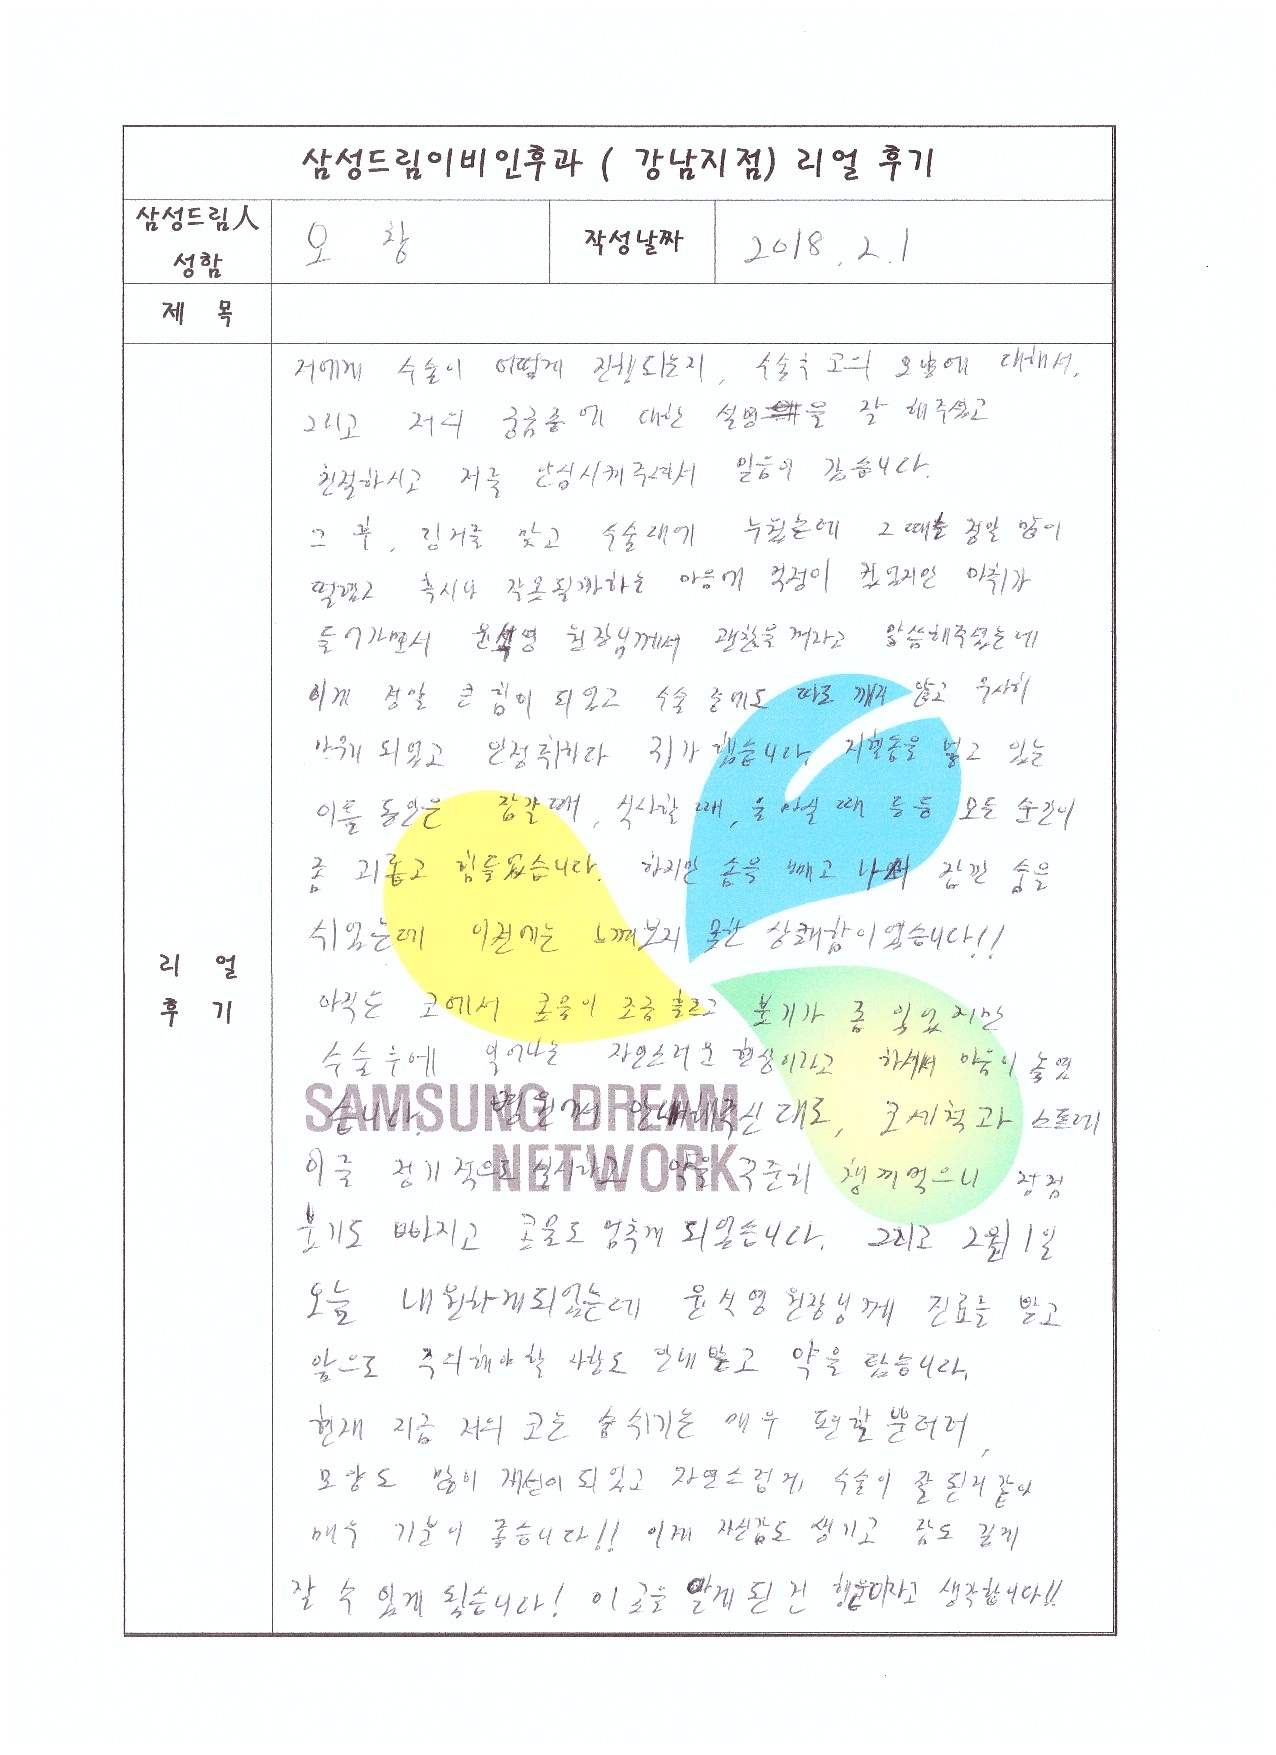 삼성드림이비인후과 ( 강남지점) 리얼 후기
삼성드림人 성함
오 창
작성날짜
2018. 2. 1
제 목
리 얼 후 기
저에게 수술이 어떻게 진행되는지, 수술후 코의 모양에 대해서,
그리고 저의 궁금증에 대한 설명을 잘 해주셨고
친절하시고 저를 안심시켜주셔서 믿음이 갔습니다.
그 후, 링거를 맞고 수술대에 누웠는데 그때는 정말 많이
떨렸고 혹시나 잘못될까하는 마음에 걱정이 컸었지만 마취가
들어가면서 윤석영 원장님께서 괜찮을꺼라고 말씀해주셨는데
이게 정말 큰 힘이 되었고 수술 중에도 따로 깨지 않고 무사히
마무리 되었고 안정취하다 귀가했습니다. 지혈솜을 넣고 있는
이틀 동안은 잠잘때, 식사할 때, 물 마실 때 등등 모든 순간이
좀 괴롭고 힘들었습니다. 하지만 솜을 빼고 나서 잠깐 숨을
쉬었는데 이전에는 느껴보지 못한 상쾌함이었습니다!!
아직은 코에서 콧물이 조금 흐르고 붓기가 좀 있었지만
수술후에 일어나는 자연스러운 현상이라고 하셔서 마음이 놓였
습니다. 병원에서 안내해주신 대로, 코세척과 스프레
이를 정기적으로 실시하고 약을 꾸준히 챙겨먹으니 점점
붓기도 빠지고 콧물도 멈추게 되었습니다. 그리고 2월 1일
오늘 내원하게되었는데 윤석영 원장님께 진료를 받고
앞으로 주의해야할 사항도 안내받고 약을 탔습니다.
현재 지금 저의 코는 숨쉬기는 매우 편할뿐더러,
모양도 많이 개선이 되었고 자연스럽게, 수술이 잘 된거 같아
매우 기분이 좋습니다!! 이제 자신감도 생기고 잠도 길게
잘 수 있게 됐습니다! 이 곳을 알게 된 건 행운이라고 생각합니다!!
SAMSUNG DREAM
NETWORK